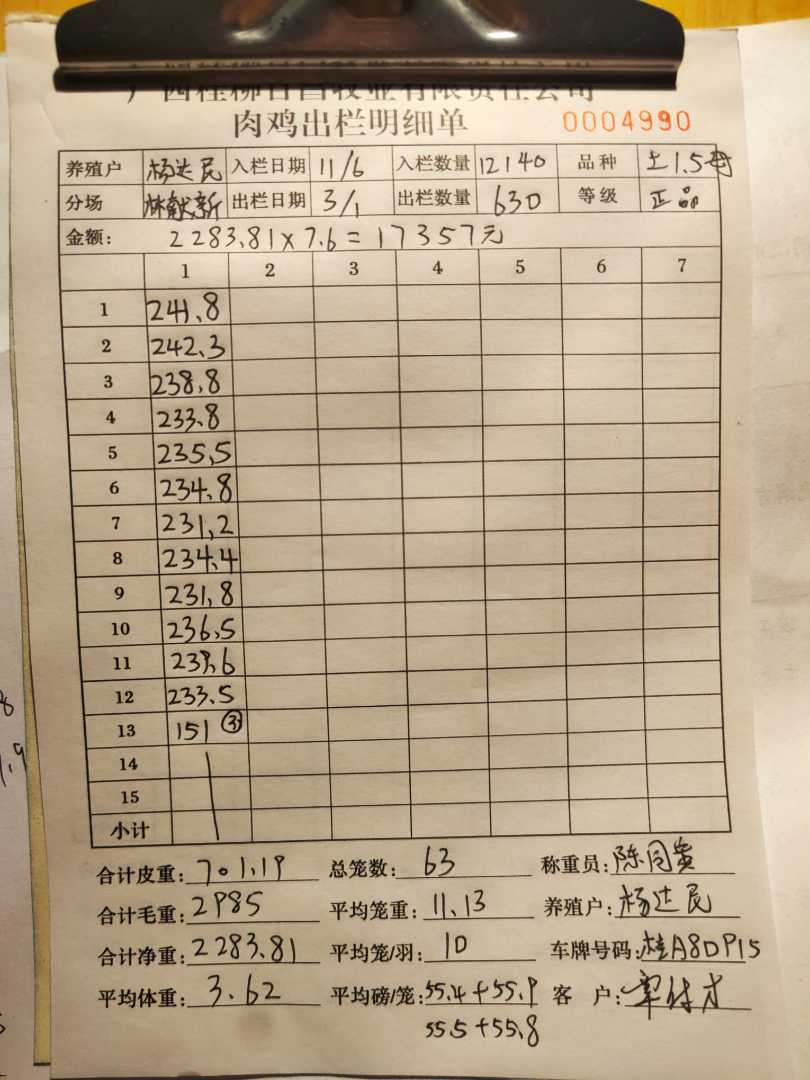 肉鸡出栏明细单 0004990
养殖户 杨达民 入栏日期 11/6 入栏数量 12140 品种 土1.5母
分场 林献新 出栏日期 3/1 出栏数量 630 等级 正品
金额: 2283.81×7.6=17357元
1 2 3 4 5 6 7
1 241.8
2 242.3
3 238.8
4 233.8
5 235.5
6 234.8
7 231.2
8 234.4
9 231.8
10 236.5
11 239.6
12 233.5
13 151 ③
14
15
小计
合计皮重: 701.19 总笼数: 63 称重员: 陈同贵
合计毛重: 2985 平均笼重: 11.13 养殖户: 杨达民
合计净重: 2283.81 平均笼/羽: 10 车牌号码: 桂A8DP15
平均体重: 3.62 平均磅/笼: 55.4+55.9 客户:
55.5+55.8